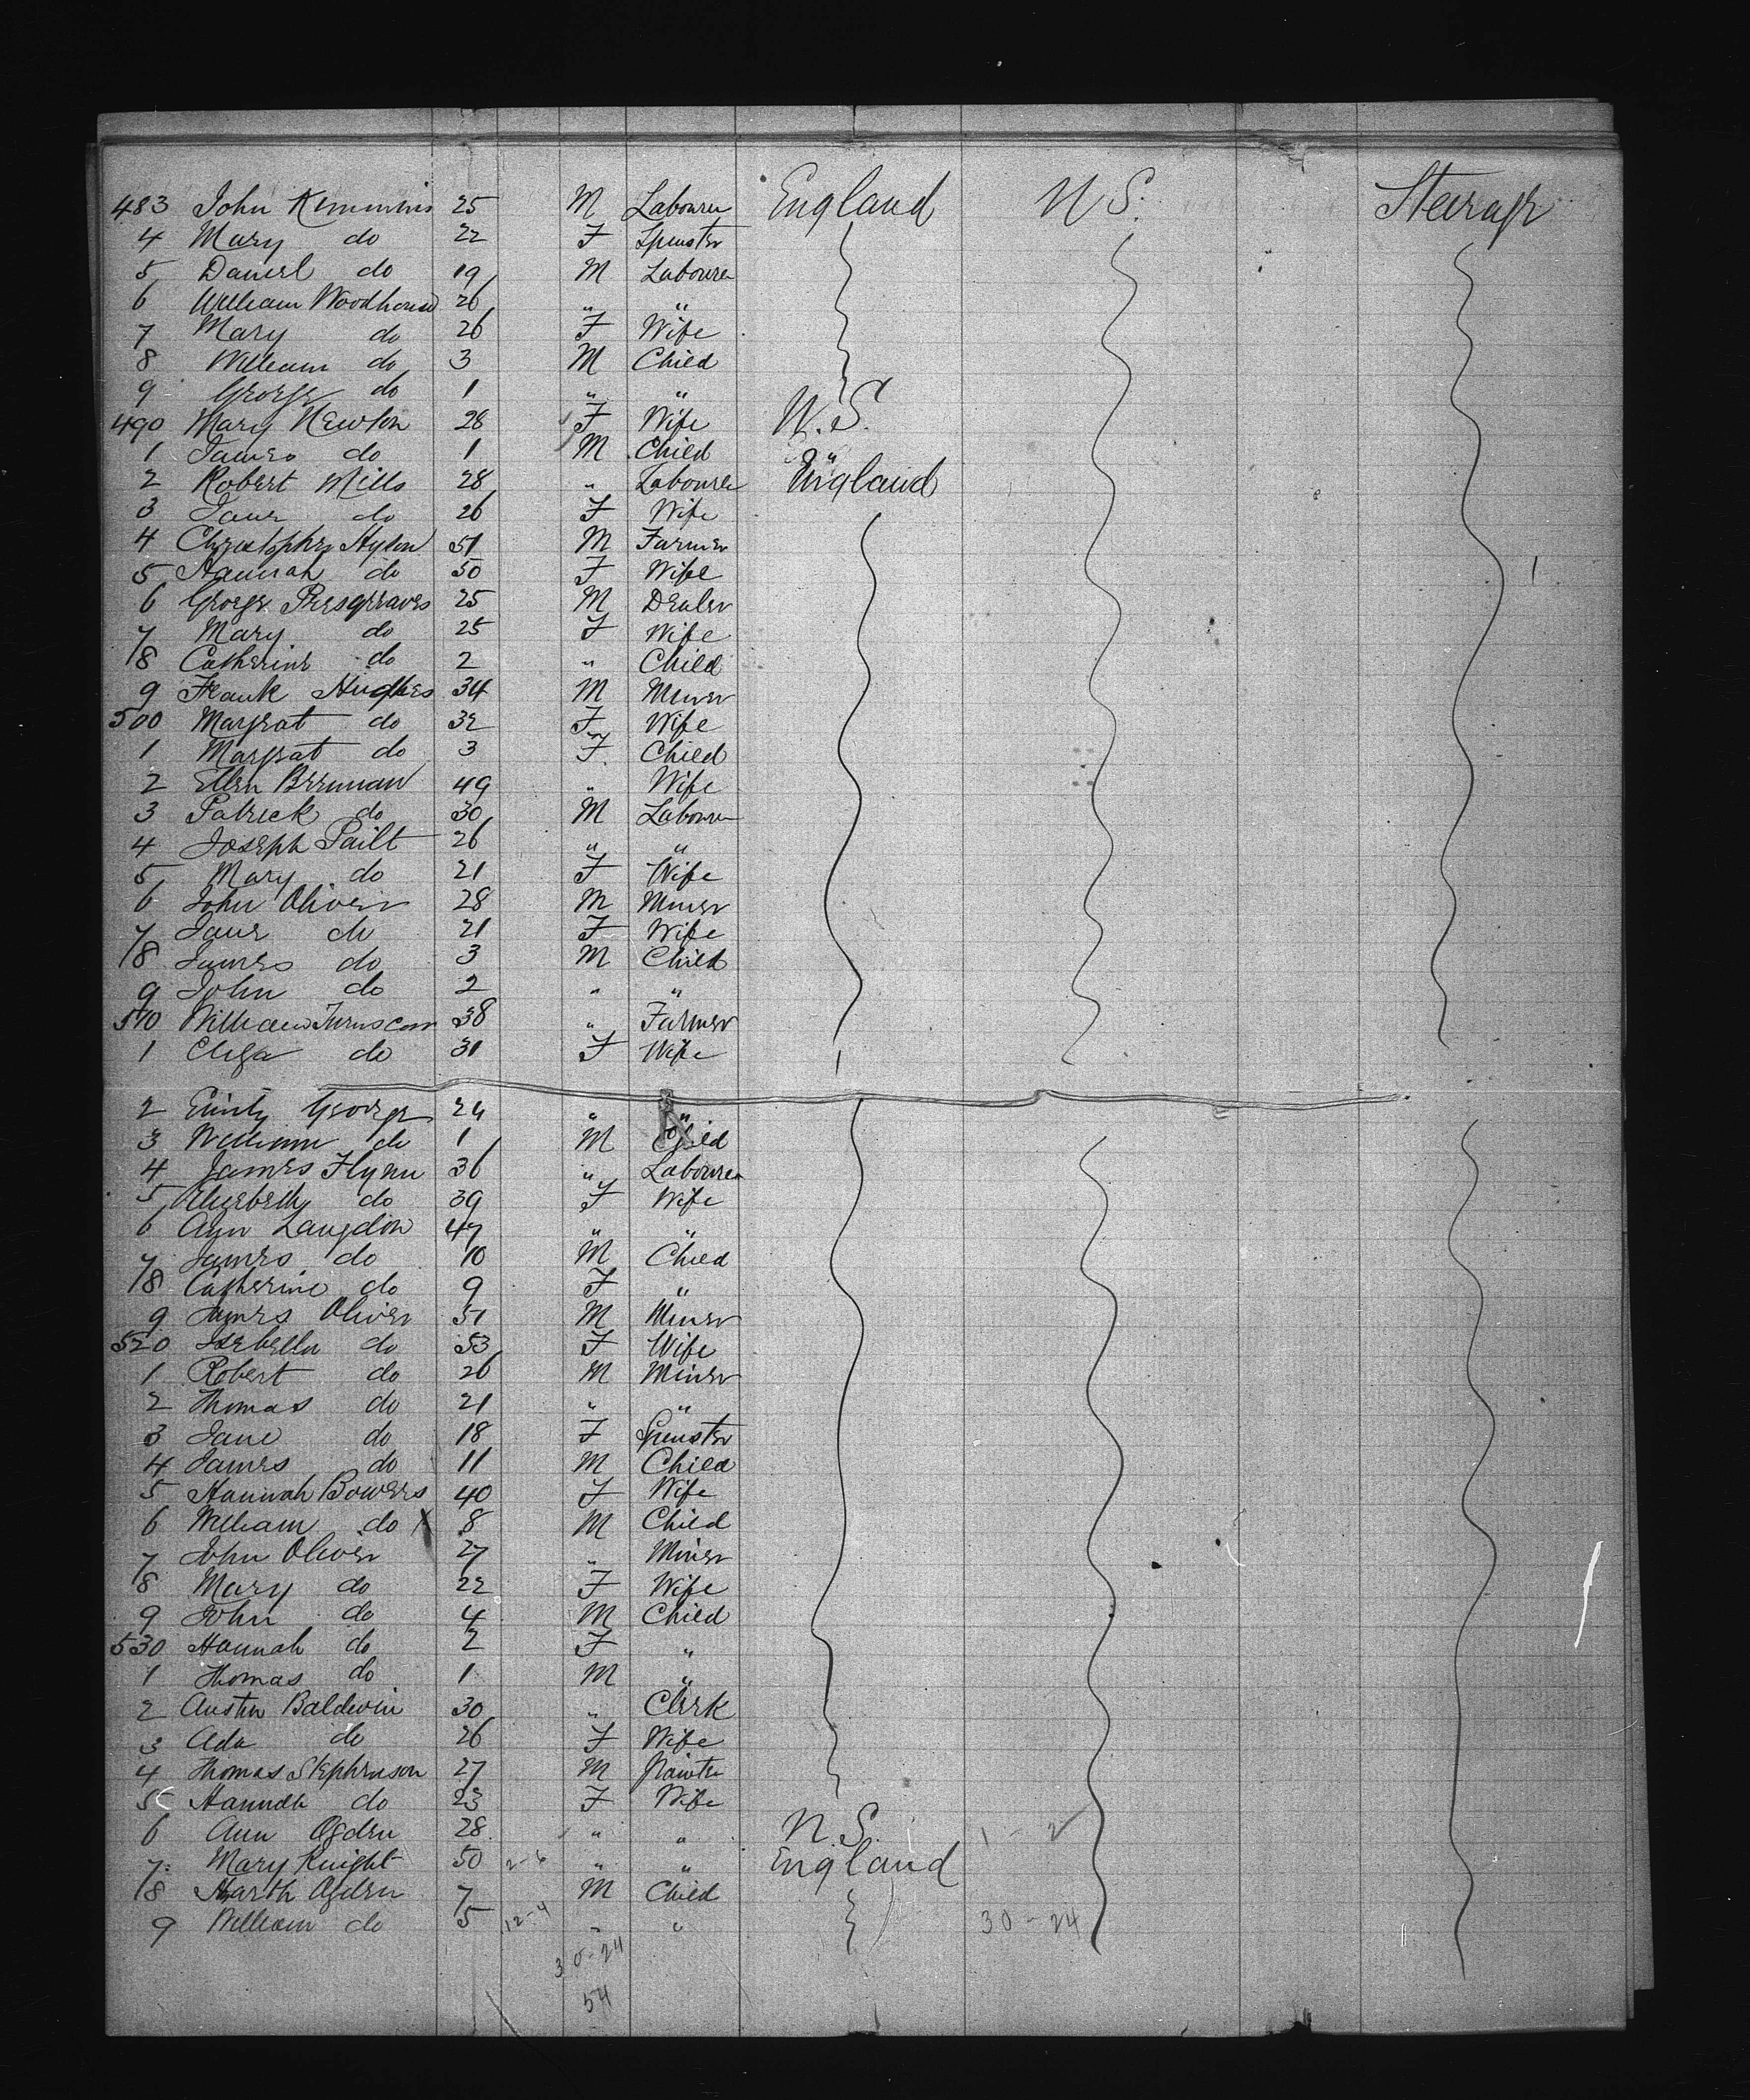 483 John Kimmins 25 M Labourer England U S. Steerage
4 Mary do 22 F Spinster
5 Daniel do 19 M Labourer
6 William Woodhouse 26 " "
7 Mary do 26 F Wife
8 William do 3 M Child
9 George do 1 " "
490 Mary Newton 28 F Wife U.S.
1 James do 1 M Child "
2 Robert Mills 28 " Labourer England
3 Jane do 26 F Wife
4 Christopher Hylon 51 M Farmer
5 Hannah do 50 F Wife
6 George Presgraves 25 M Dealer
7 Mary do 25 F Wife
8 Catherine do 2 " Child
9 Frank Hughes 34 M Miner
500 Margrat do 32 F Wife
1 Margrat do 3 F Child
2 Ellen Brennan 49 " Wife
3 Patrick do 30 M Labourer
4 Joseph Pailt 26 " "
5 Mary do 21 F Wife
6 John Oliver 28 M Miner
7 Jane do 21 F Wife
8 James do 3 M Child
9 John do 2 " "
510 William 38 " Farmer
1 Eliza do 31 F Wife
2 Emily George 24 " "
3 William do 1 M Child
4 James Flynn 36 " Labourer
5 Elizebeth do 39 F Wife
6 Ann Langdon 47 " "
7 James do 10 M Child
8 Catherine do 9 F "
9 James Oliver 51 M Miner
520 Isebella do 53 F Wife
1 Robert do 26 M Miner
2 Thomas do 21 " "
3 Jane do 18 F Spinster
4 James do 11 M Child
5 Hannah Bowers 40 F Wife
6 William do X 8 M Child
7 John Oliver 27 " Miner
8 Mary do 22 F Wife
9 John do 4 M Child
530 Hannah do 2 F "
1 Thomas do 1 M "
2 Austin Baldwin 30 " Clerk
3 Ada do 26 F Wife
4 Thomas Stephenson 27 M Painter
5 Hannah do 23 F Wife
6 Ann Ogden 28 " " U.S. 1 - 2
7 Mary Knight 50 2-6 " " England
8 Ogden 7 M Child
9 William do 5 12-4 " " 30-24
30-24
54